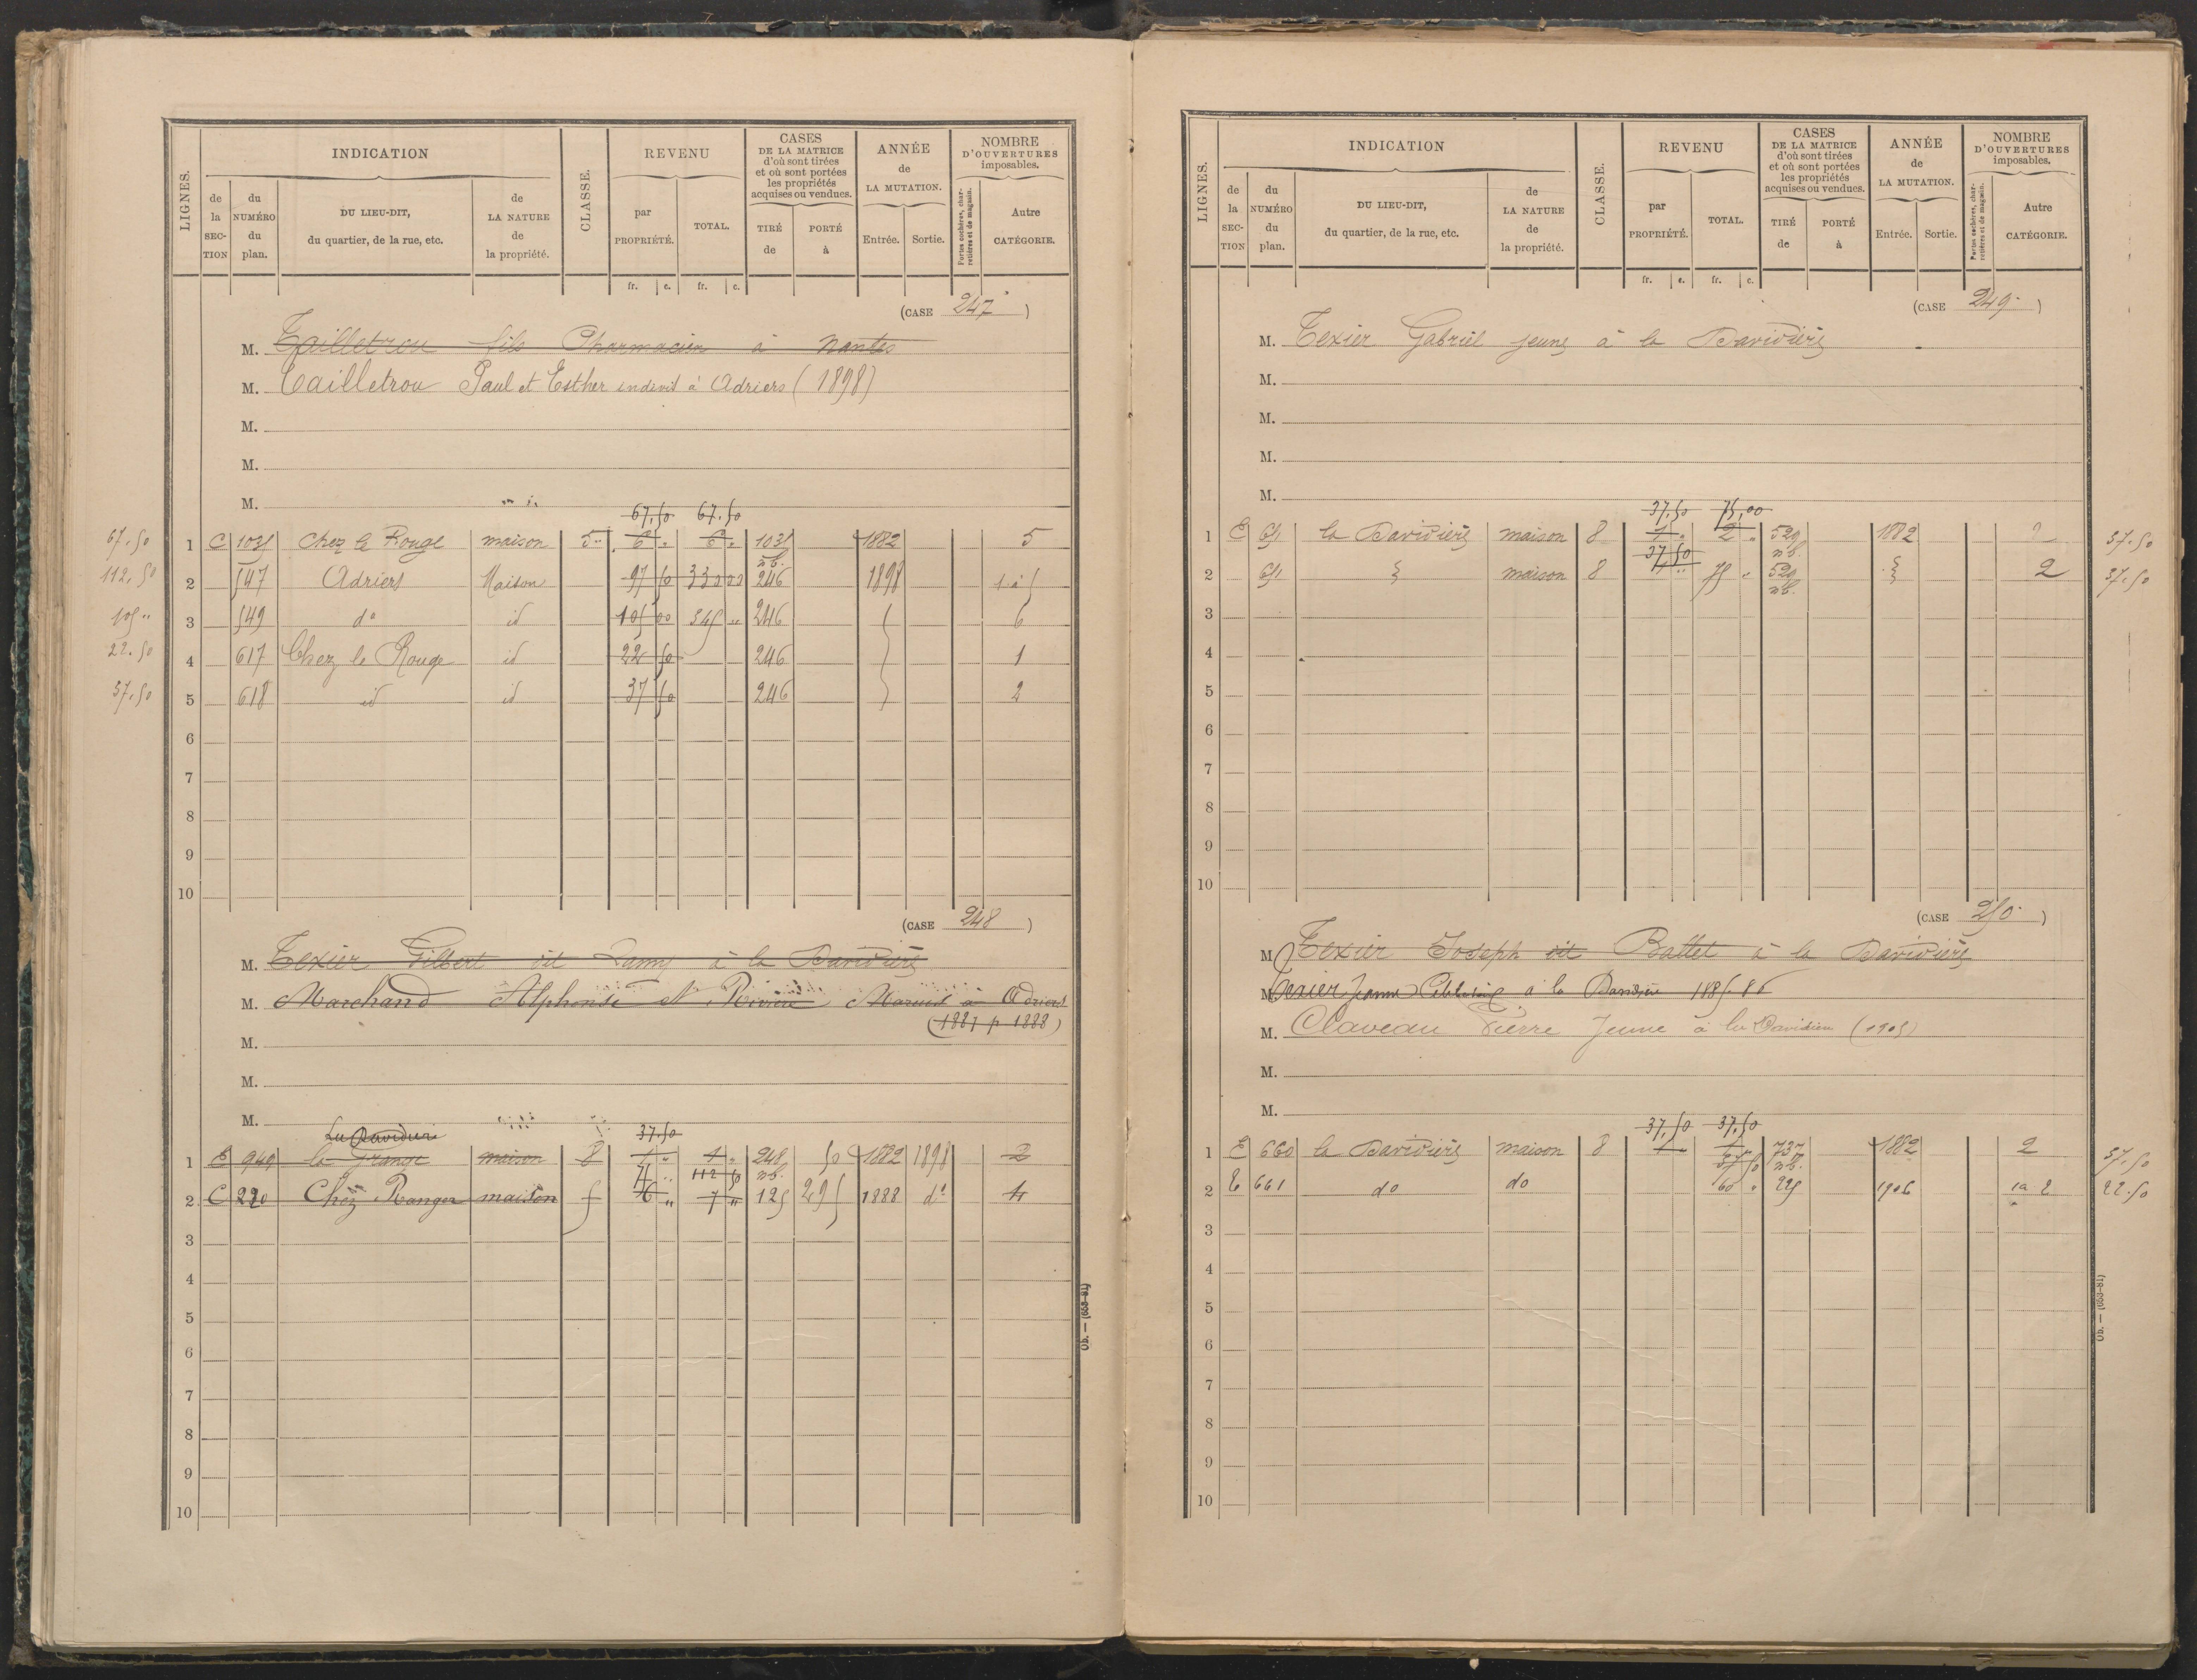 LIGNES.
INDICATION
CLASSE.
REVENU
CASES
DE LA MATRICE
d'où sont tirées
et où sont portées
les propriétés
acquises ou vendues.
ANNÉE
de
LA MUTATION.
NOMBRE
D'OUVERTURES
imposables.
de la SEC-TION
du NUMÉRO du plan.
DU LIEU-DIT,
du quartier, de la rue, etc.
de LA NATURE de la propriété.
par PROPRIÉTÉ.
TOTAL.
TIRÉ de
PORTÉ à
Entrée.
Sortie.
Portes cochères, charretières et de magasin.
Autre CATÉGORIE.
fr. c. fr. c.
(CASE 247)
M. Tailletrou fils Pharmacien à Nantes
M. Tailletrou Paul et Esther indivis à Adriers (1898)
M.
M.
M.
67.50 67.50
67.50 1 C 1031 Chez le Rouge maison 5 6 " 6 " 1031 nb. 1882 5
112.50 2 547 Adriers Maison 97 50 330 00 246 1898 1 à 5
105 " 3 549 do id 105 00 345 " 246 6
22.50 4 617 Chez le Rouge id 22 50 246 1
37.50 5 618 id id 37 50 246 2
6
7
8
9
10
(CASE 248)
M. Texier Gilbert dit Lamy à la Davidière
M. Marchand Alphonse et Rivière à Adriers
(1887 p 1888)
M.
M.
M.
La Davidière 37.50
1 E 949 la Grange maison 8 1 " 1 " 248 nb. 50 1882 1898 2
112 50
2 C 220 Chez Ranger maison 5 6 " 7 " 125 295 1888 do 4
3
4
5
6
7
8
9
10
Ob. — (653-81)
LIGNES.
INDICATION
CLASSE.
REVENU
CASES
DE LA MATRICE
d'où sont tirées
et où sont portées
les propriétés
acquises ou vendues.
ANNÉE
de
LA MUTATION.
NOMBRE
D'OUVERTURES
imposables.
de la SEC-TION
du NUMÉRO du plan.
DU LIEU-DIT,
du quartier, de la rue, etc.
de LA NATURE de la propriété.
par PROPRIÉTÉ.
TOTAL.
TIRÉ de
PORTÉ à
Entrée.
Sortie.
Portes cochères, charretières et de magasin.
Autre CATÉGORIE.
fr. c. fr. c.
(CASE 249)
M. Texier Gabriel jeune à la Davidière
M.
M.
M.
M.
37.50 75,00
1 E 651 la Davidière maison 8 1 " 2 " 529 nb. 1882 2 37.50
37 50
2 651 maison 8 75 " 529 nb. 2 37.50
3
4
5
6
7
8
9
10
(CASE 250)
M. Texier Joseph dit Battet à la Davidière
M. Texier Jeanne à la Davidière 1885.86
M. Claveau Pierre Jeune à la Davidière (1905)
M.
M.
37.50 37.50
1 E 660 la Davidière maison 8 1 " 1 " 737 nb. 1882 2 37.50
37 50
2 E 661 do do 60 " 225 1906 1 a 2 22.50
3
4
5
6
7
8
9
10
Ob. — (653-81)